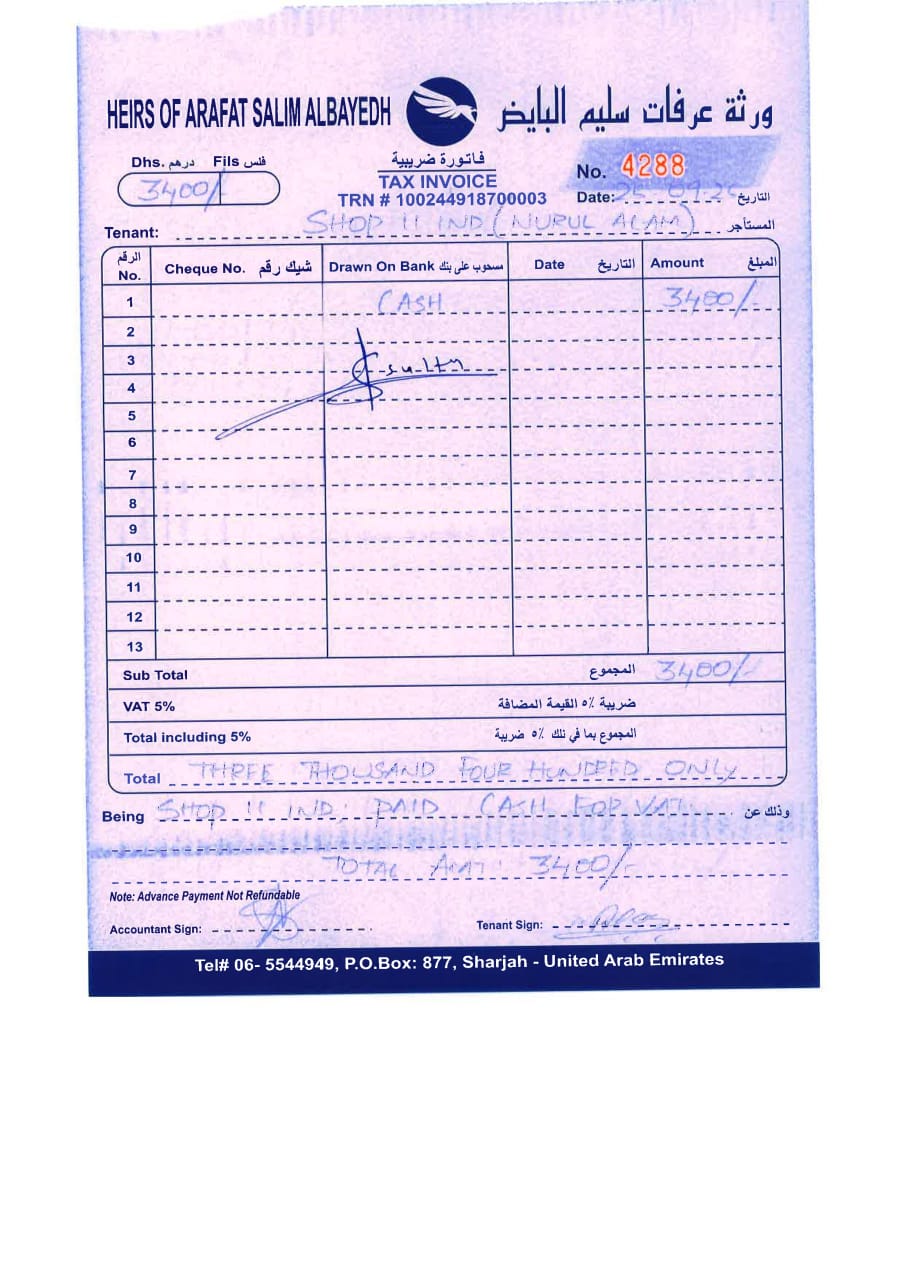 HEIRS OF ARAFAT SALIM ALBAYEDH ورثة عرفات سليم البايض
Dhs. درهم Fils فلس
3400/-
فاتورة ضريبية
TAX INVOICE
TRN # 100244918700003
No. 4288
Date: التاريخ
Tenant: SHOP 11 IND (NURUL ALAM) المستأجر
الرقم No. Cheque No. شيك رقم Drawn On Bank مسحوب على بنك Date التاريخ Amount المبلغ
1 CASH 3400/-
2
3
4
5
6
7
8
9
10
11
12
13
Sub Total المجموع 3400/-
VAT 5% ضريبة ٥٪ القيمة المضافة
Total including 5% المجموع بما في تلك ٥٪ ضريبة
Total THREE THOUSAND FOUR HUNDRED ONLY
Being SHOP 11 IND: PAID CASH FOR VAT وذلك عن
TOTAL AMT: 3400/-
Note: Advance Payment Not Refundable
Accountant Sign: Tenant Sign:
Tel# 06- 5544949, P.O.Box: 877, Sharjah - United Arab Emirates